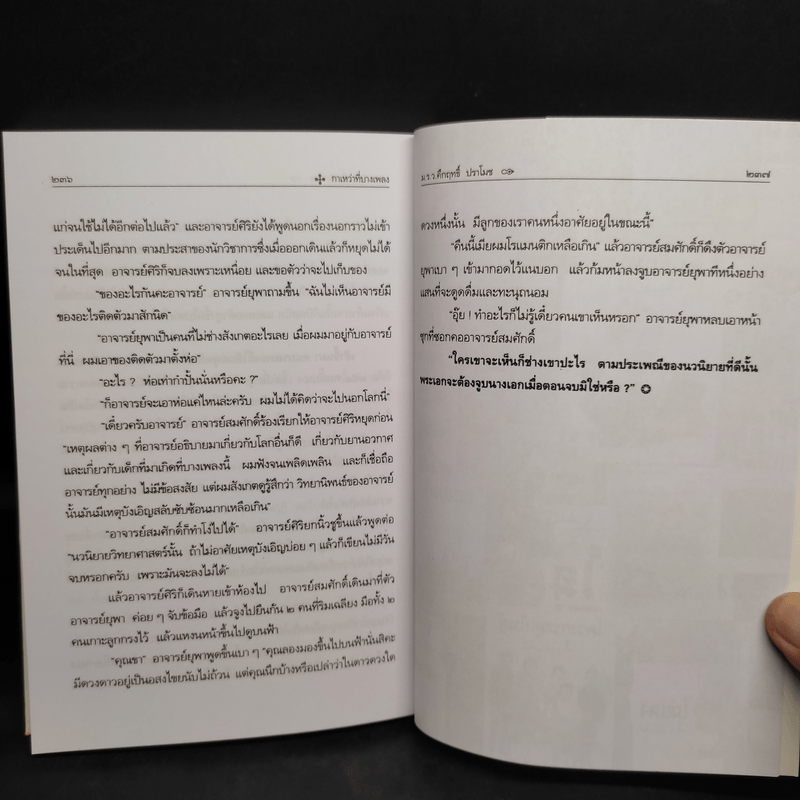 ๒๓๖ กาเหว่าที่บางเพลง
แก่จนใช้ไม่ได้อีกต่อไปแล้ว” และอาจารย์ศิริยังได้พูดนอกเรื่องนอกราวไม่เข้า
ประเด็นไปอีกมาก ตามประสาของนักวิชาการซึ่งเมื่อออกเดินแล้วก็หยุดไม่ได้
จนในที่สุด อาจารย์ศิริก็จบลงเพราะเหนื่อย และขอตัวว่าจะไปเก็บของ
“ของอะไรกันคะอาจารย์” อาจารย์ยุพาถามขึ้น “ฉันไม่เห็นอาจารย์มี
ของอะไรติดตัวมาสักนิด”
“อาจารย์ยุพาเป็นคนที่ไม่ช่างสังเกตอะไรเลย เมื่อผมมาอยู่กับอาจารย์
ที่นี่ ผมเอาของติดตัวมาตั้งห่อ”
“อะไร ? ห่อเท่ากำปั้นนั่นหรือคะ ?”
“ก็อาจารย์จะเอาห่อแค่ไหนล่ะครับ ผมไม่ได้คิดว่าจะไปนอกโลกนี่”
“เดี๋ยวครับอาจารย์” อาจารย์สมศักดิ์ร้องเรียกให้อาจารย์ศิริหยุดก่อน
“เหตุผลต่าง ๆ ที่อาจารย์อธิบายมาเกี่ยวกับโลกอื่นก็ดี เกี่ยวกับยานอวกาศ
และเกี่ยวกับเด็กที่มาเกิดที่บางเพลงนี้ ผมฟังจนเพลิดเพลิน และก็เชื่อถือ
อาจารย์ทุกอย่าง ไม่มีข้อสงสัย แต่ผมสังเกตดูรู้สึกว่า วิทยานิพนธ์ของอาจารย์
นั้นมันมีเหตุบังเอิญสลับซับซ้อนมากเหลือเกิน”
“อาจารย์สมศักดิ์ก็ทำโง่ไปได้” อาจารย์ศิริยกนิ้วชูขึ้นแล้วพูดต่อ
“นวนิยายวิทยาศาสตร์นั้น ถ้าไม่อาศัยเหตุบังเอิญบ่อย ๆ แล้วก็เขียนไม่มีวัน
จบหรอกครับ เพราะมันจะลงไม่ได้”
แล้วอาจารย์ศิริก็เดินหายเข้าห้องไป อาจารย์สมศักดิ์เดินมาที่ตัว
อาจารย์ยุพา ค่อย ๆ จับข้อมือ แล้วจูงไปยืนกัน ๒ คนที่ริมเฉลียง มือทั้ง ๒
คนเกาะลูกกรงไว้ แล้วแหงนหน้าขึ้นไปดูบนฟ้า
“คุณขา” อาจารย์ยุพาพูดขึ้นเบา ๆ “คุณลองมองขึ้นไปบนฟ้านั่นสิคะ
มีดวงดาวอยู่เป็นอสงไขยนับไม่ถ้วน แต่คุณนึกบ้างหรือเปล่าว่าในดาวดวงใด
ม.ร.ว คึกฤทธิ์ ปราโมช ๒๓๗
ดวงหนึ่งนั้น มีลูกของเราคนหนึ่งอาศัยอยู่ในขณะนี้”
“คืนนี้เมียผมโรแมนติกเหลือเกิน” แล้วอาจารย์สมศักดิ์ก็ดึงตัวอาจารย์
ยุพาเบา ๆ เข้ามากอดไว้แนบอก แล้วก้มหน้าลงจูบอาจารย์ยุพาทีหนึ่งอย่าง
แสนที่จะดูดดื่มและทะนุถนอม
“อุ๊ย ! ทำอะไรก็ไม่รู้เดี๋ยวคนเขาเห็นหรอก” อาจารย์ยุพาหลบเอาหน้า
ซุกที่ซอกคออาจารย์สมศักดิ์
“ใครเขาจะเห็นก็ช่างเขาปะไร ตามประเพณีของนวนิยายที่ดีนั้น
พระเอกจะต้องจูบนางเอกเมื่อตอนจบมิใช่หรือ ?”